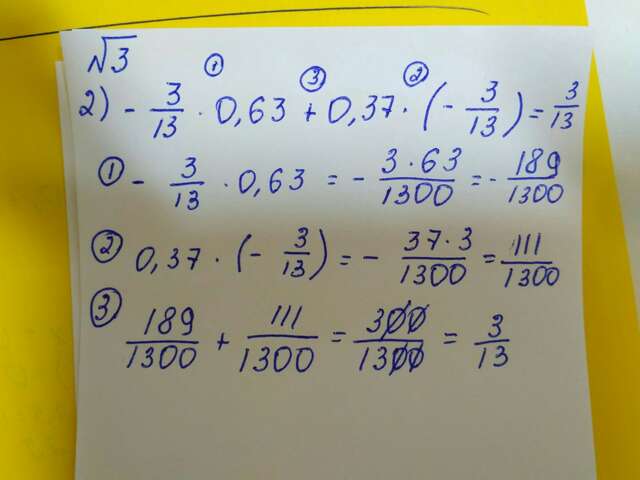 √3
① ③ ②
2) - 3/13 · 0,63 + 0,37 · (- 3/13) = 3/13
① - 3/13 · 0,63 = - 3·63/1300 = - 189/1300
② 0,37 · (- 3/13) = - 37·3/1300 = 111/1300
③ 189/1300 + 111/1300 = 300/1300 = 3/13